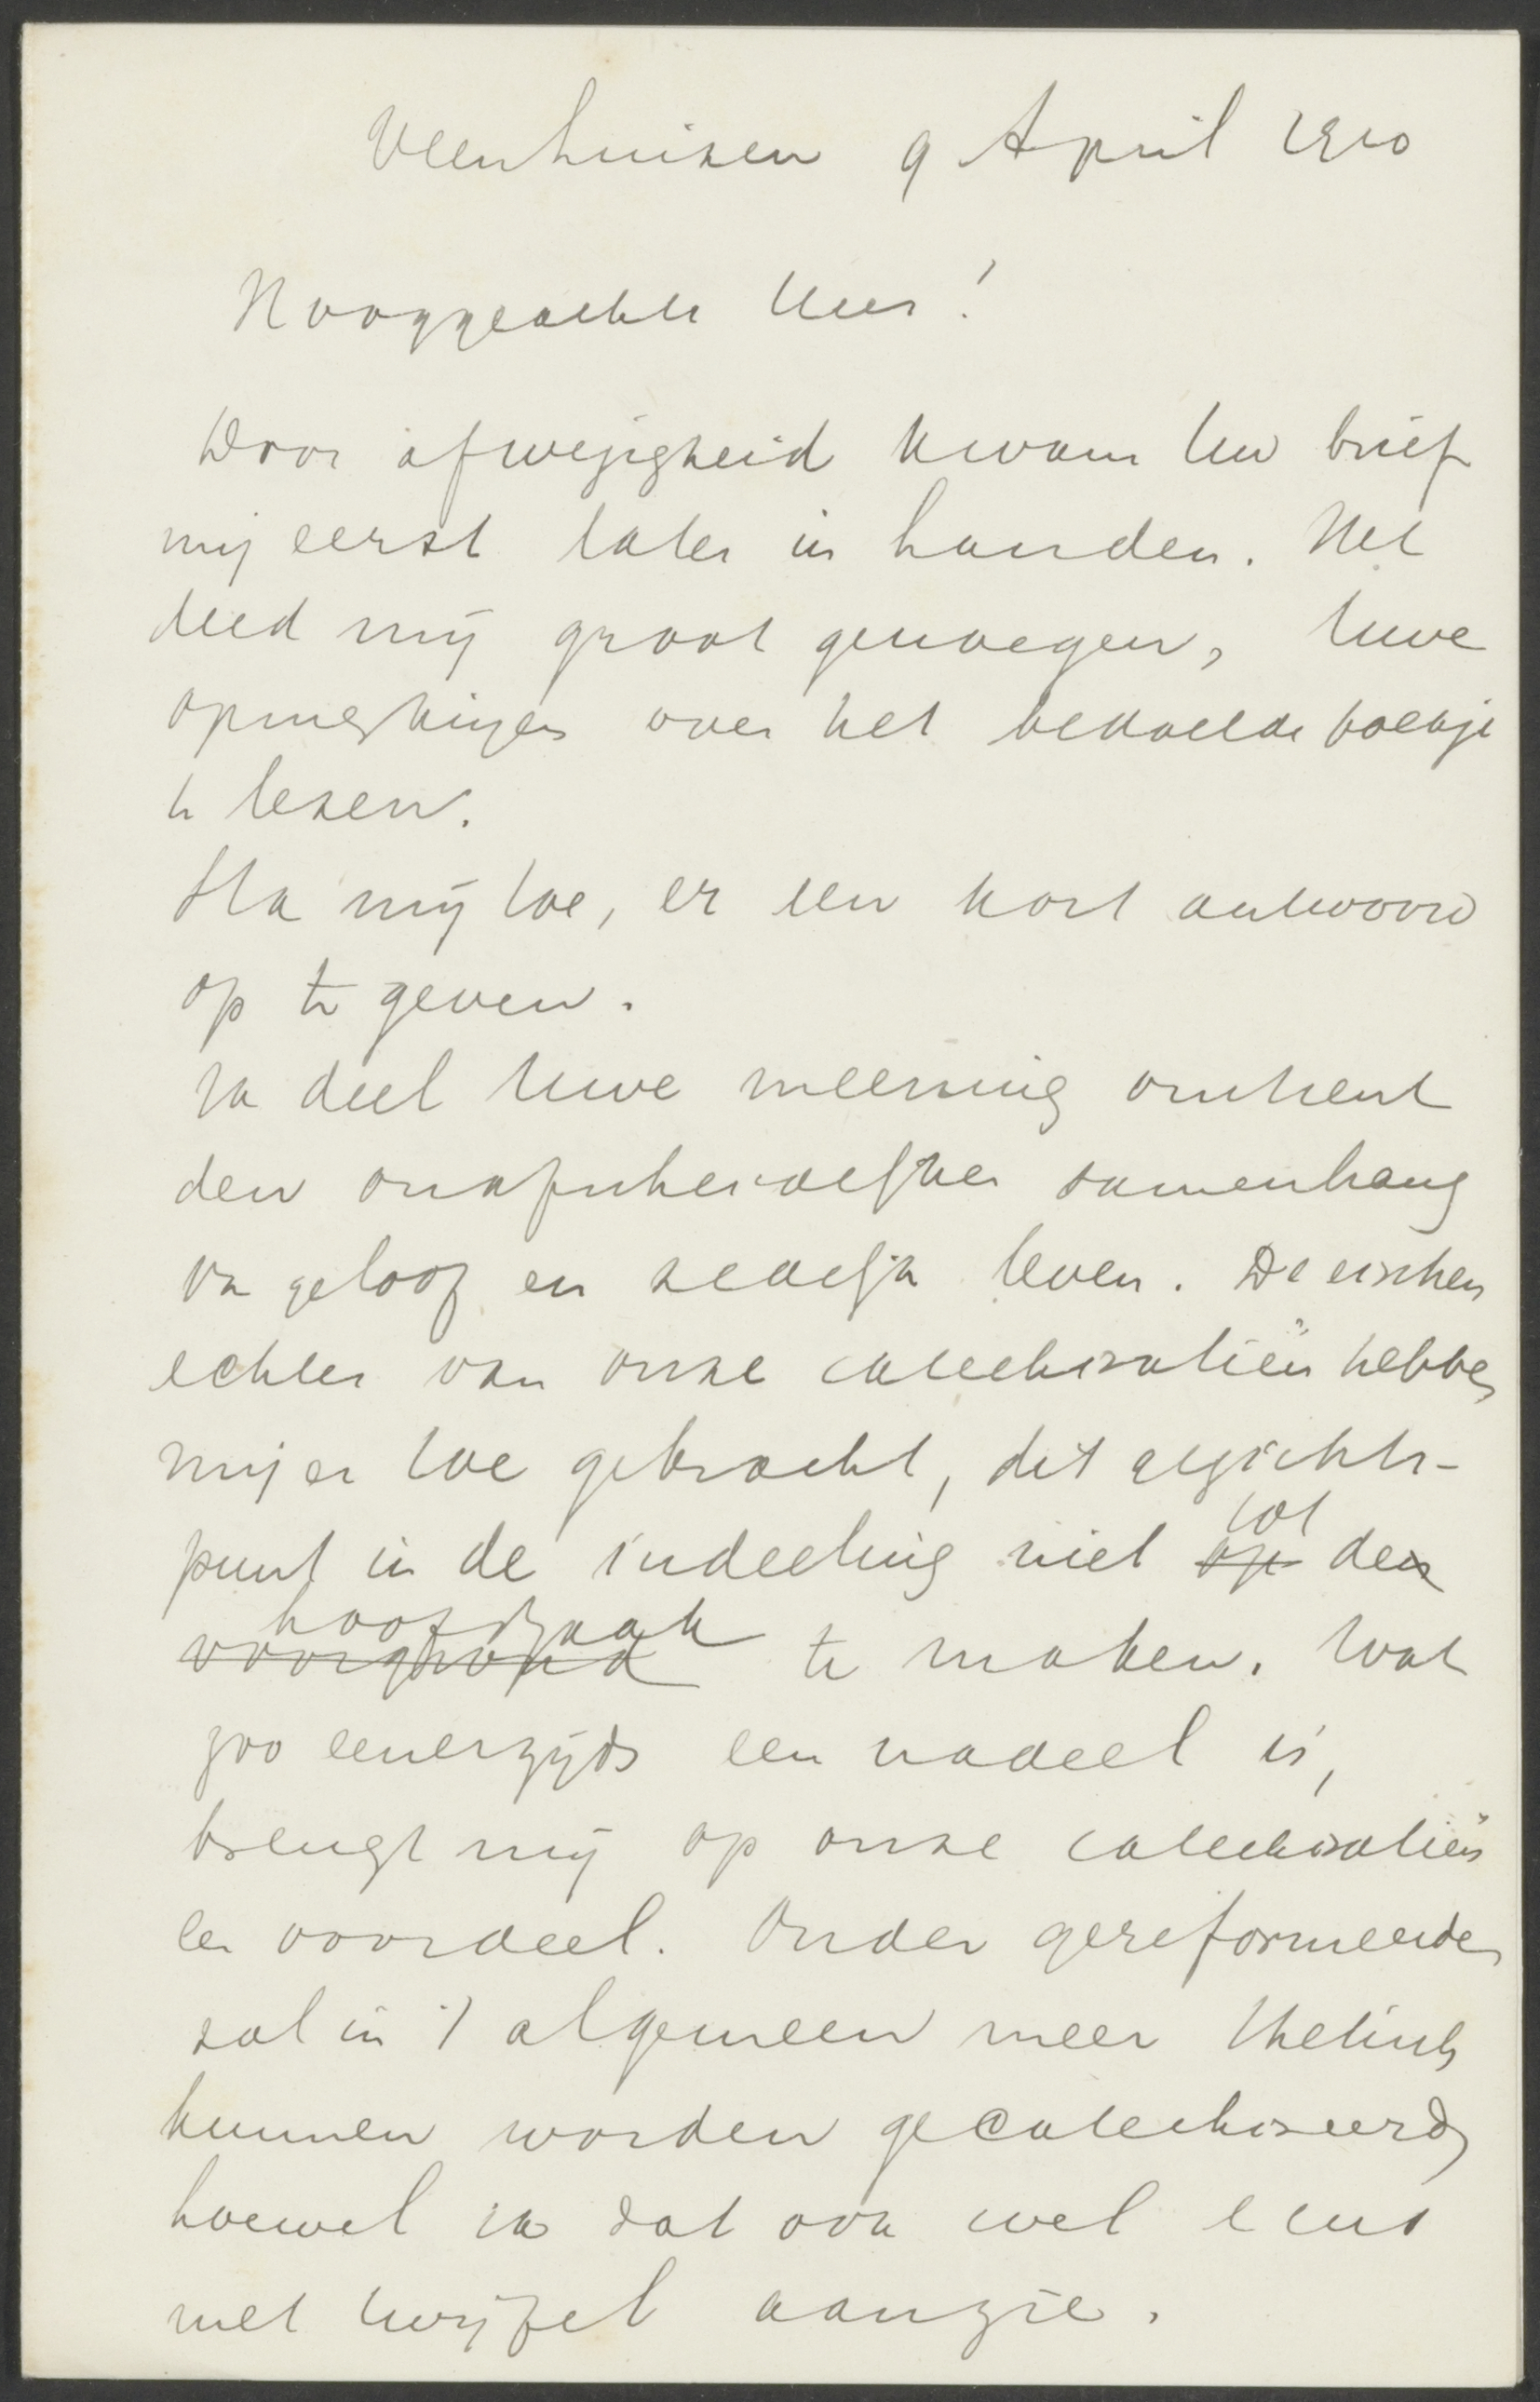 Veenhuizen 9 April 1910
Hooggeachte Heer!
Door afwezigheid kwam Uw brief
mij eerst later in handen. Het
deed mij groot genoegen, Uwe
opmerkingen over het bedoelde boekje
te lezen.
Sta mij toe, er een kort antwoord
op te geven.
Ik deel Uwe meening omtrent
den onafscheidelijken samenhang
van geloof en zedelijk leven. De eischen
echter van onze catechisatiën hebben
mij er toe gebracht, dit gezichts-
punt in de indeeling niet op tot den
voorgrond hoofdzaak te maken. Wat
zoo eenerzijds een nadeel is,
brengt mij op onze catechisatiën
een voordeel. Onder gereformeerden
zal in 't algemeen meer thetisch
kunnen worden gecatechiseerd,
hoewel ik dat ook wel eens
met twijfel aanzie.